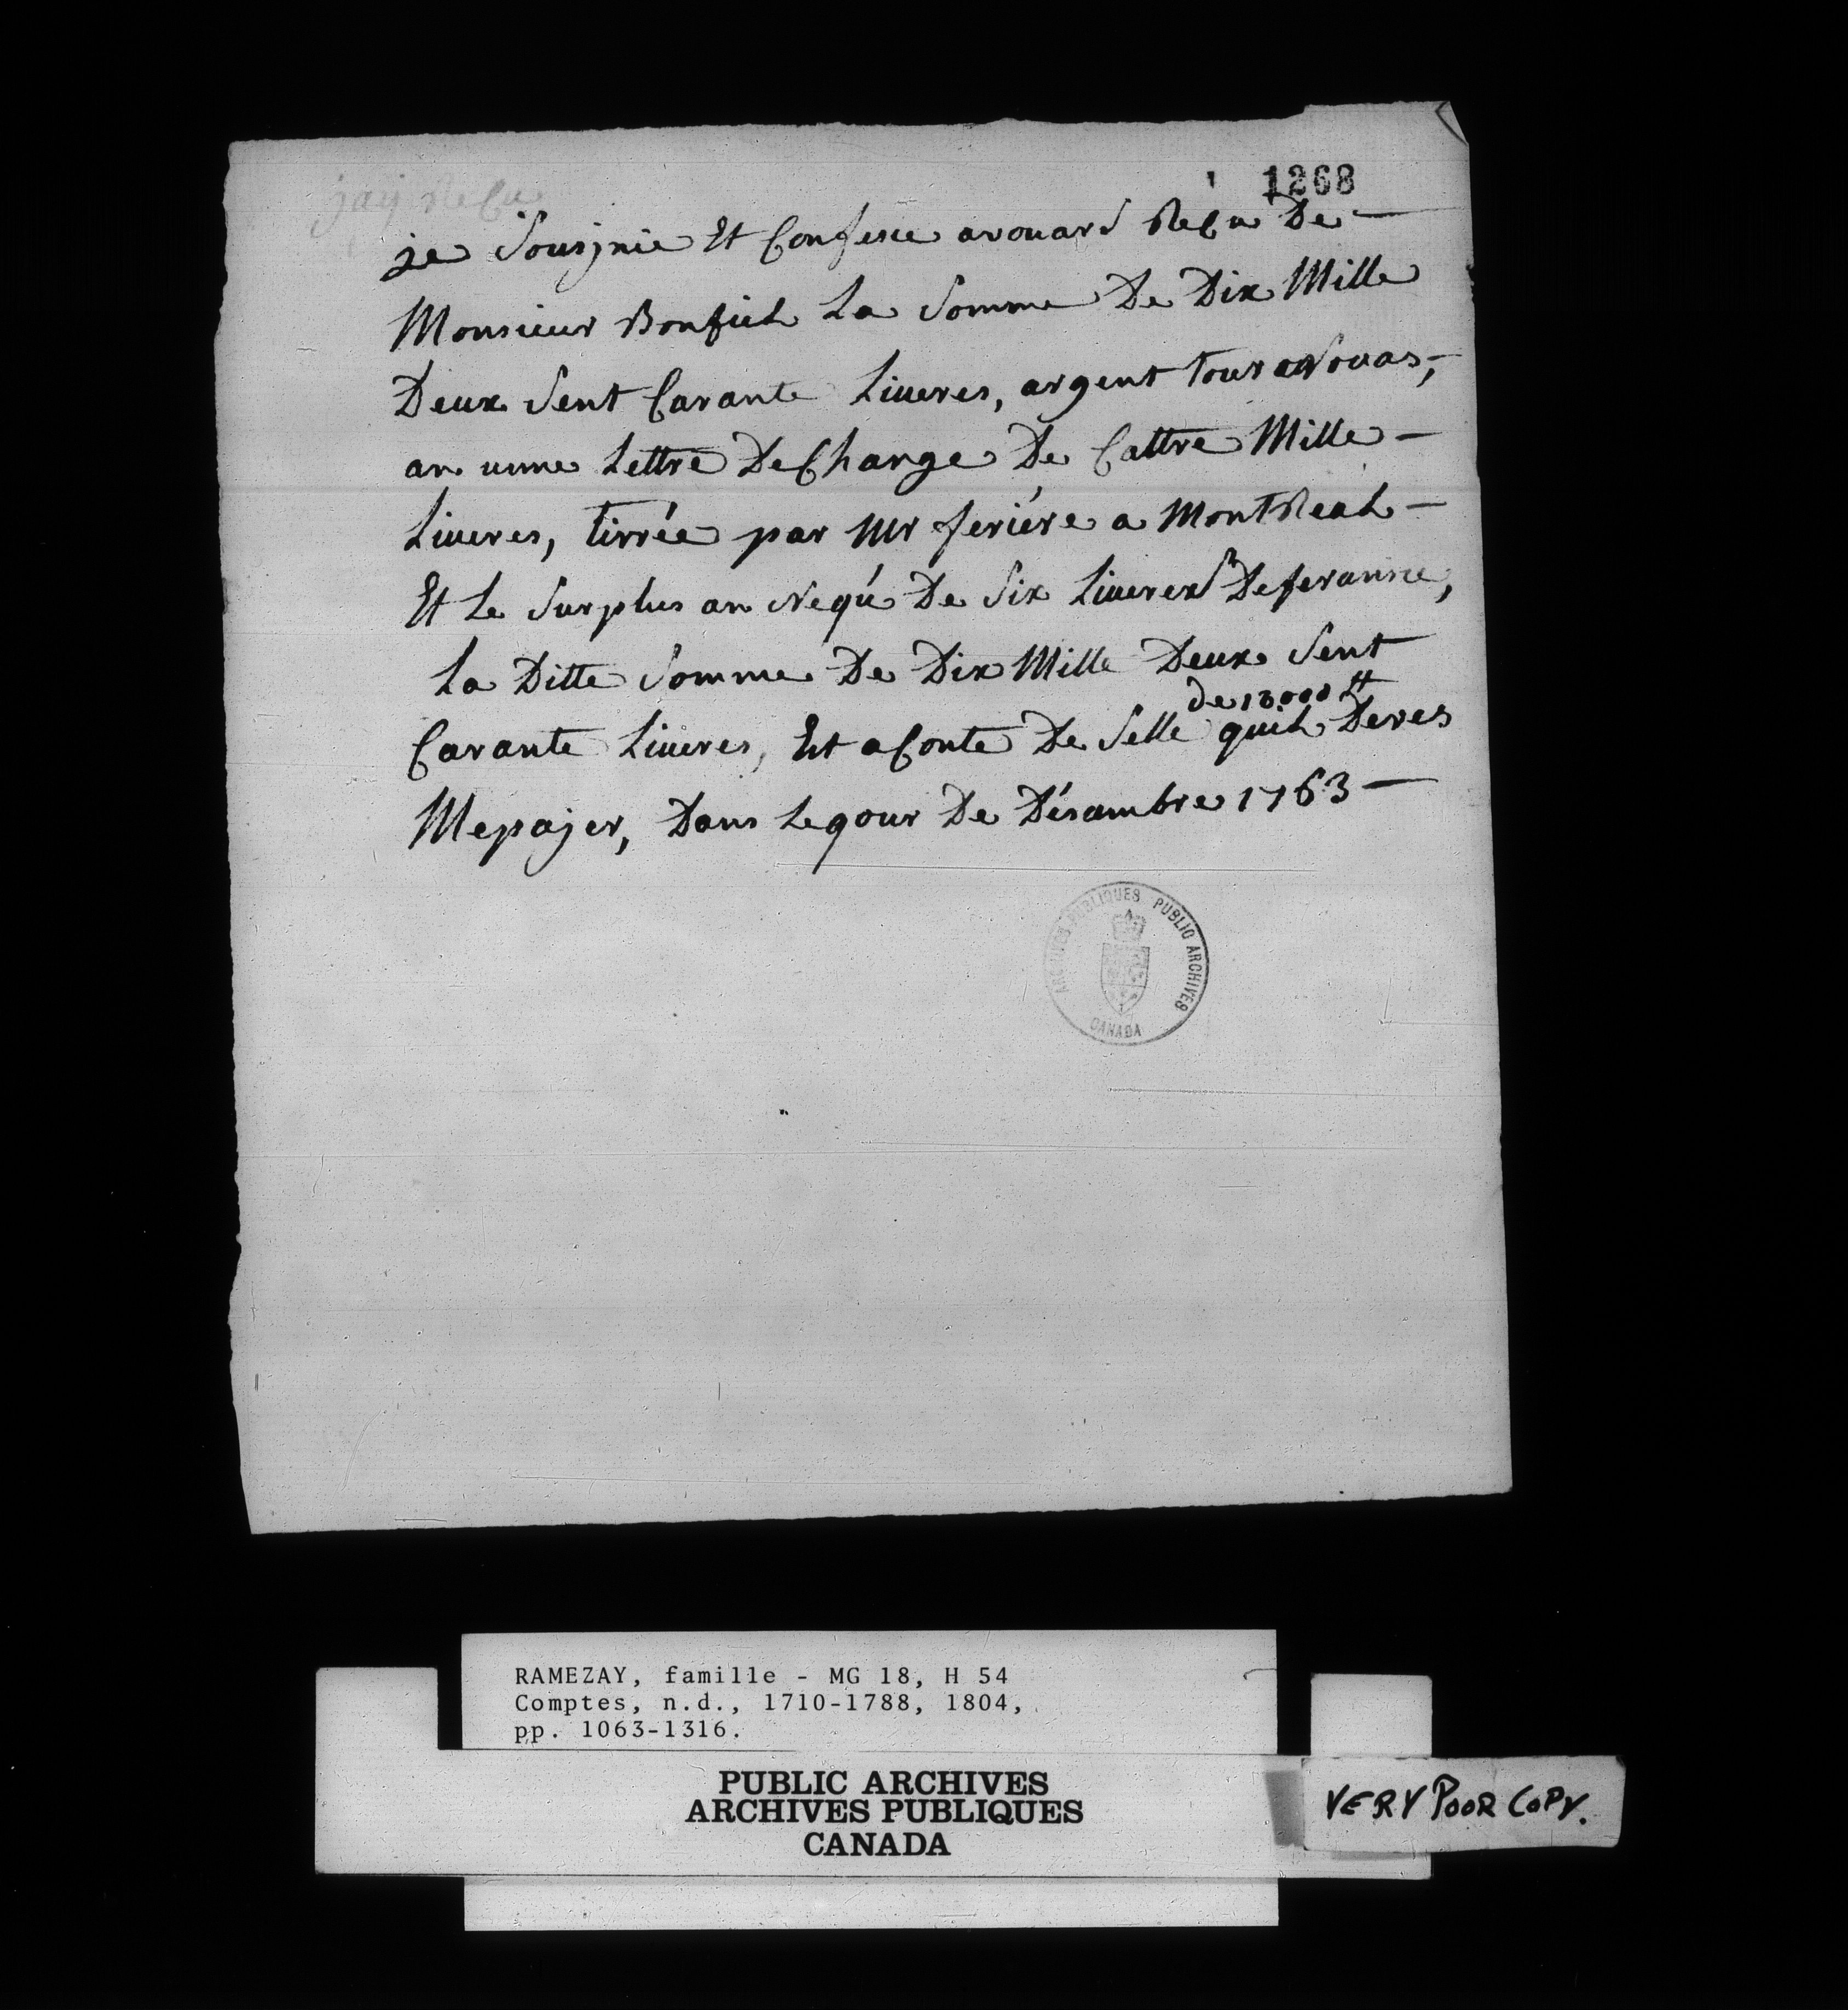 1268
jay Recu
je Sousjnie Et Confesse avouard Recu De —
Monsieur Bonfiel La Somme De Dix Mille
Deux Sent Carante Liueres, argent
an unne Lettre DeChange De Cattre Mille —
Liueres, tirrée par Mr feriére a MontReal —
Et Le Surplus an De Six Liueres Deferanse,
La Ditte Somme De Dix Mille Deux Sent
Carante Liueres, Est aConte De Selle de 13000 ₶ quil Deves
Mepajer, Dans Legour De Désambre 1763 —
ARCHIVES PUBLIQUES PUBLIC ARCHIVES
CANADA
RAMEZAY, famille - MG 18, H 54
Comptes, n.d., 1710-1788, 1804,
pp. 1063-1316.
PUBLIC ARCHIVES
ARCHIVES PUBLIQUES
CANADA
VERY POOR COPY.